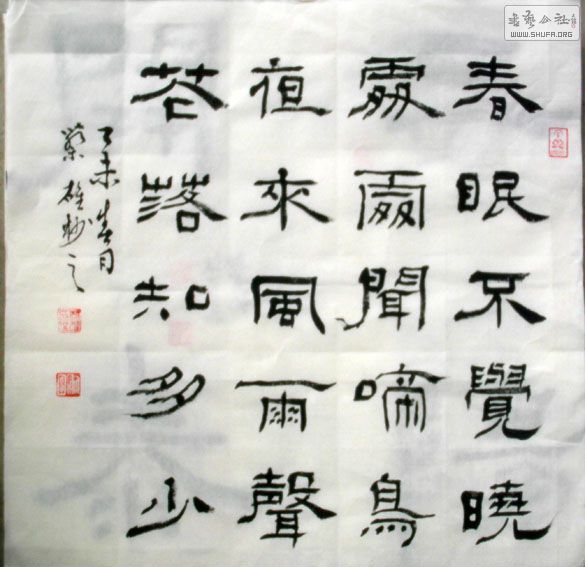 春眠不覺曉
處處聞啼鳥
夜來風雨聲
花落知多少
未春月
書藝公社
WWW.SHUFA.ORG